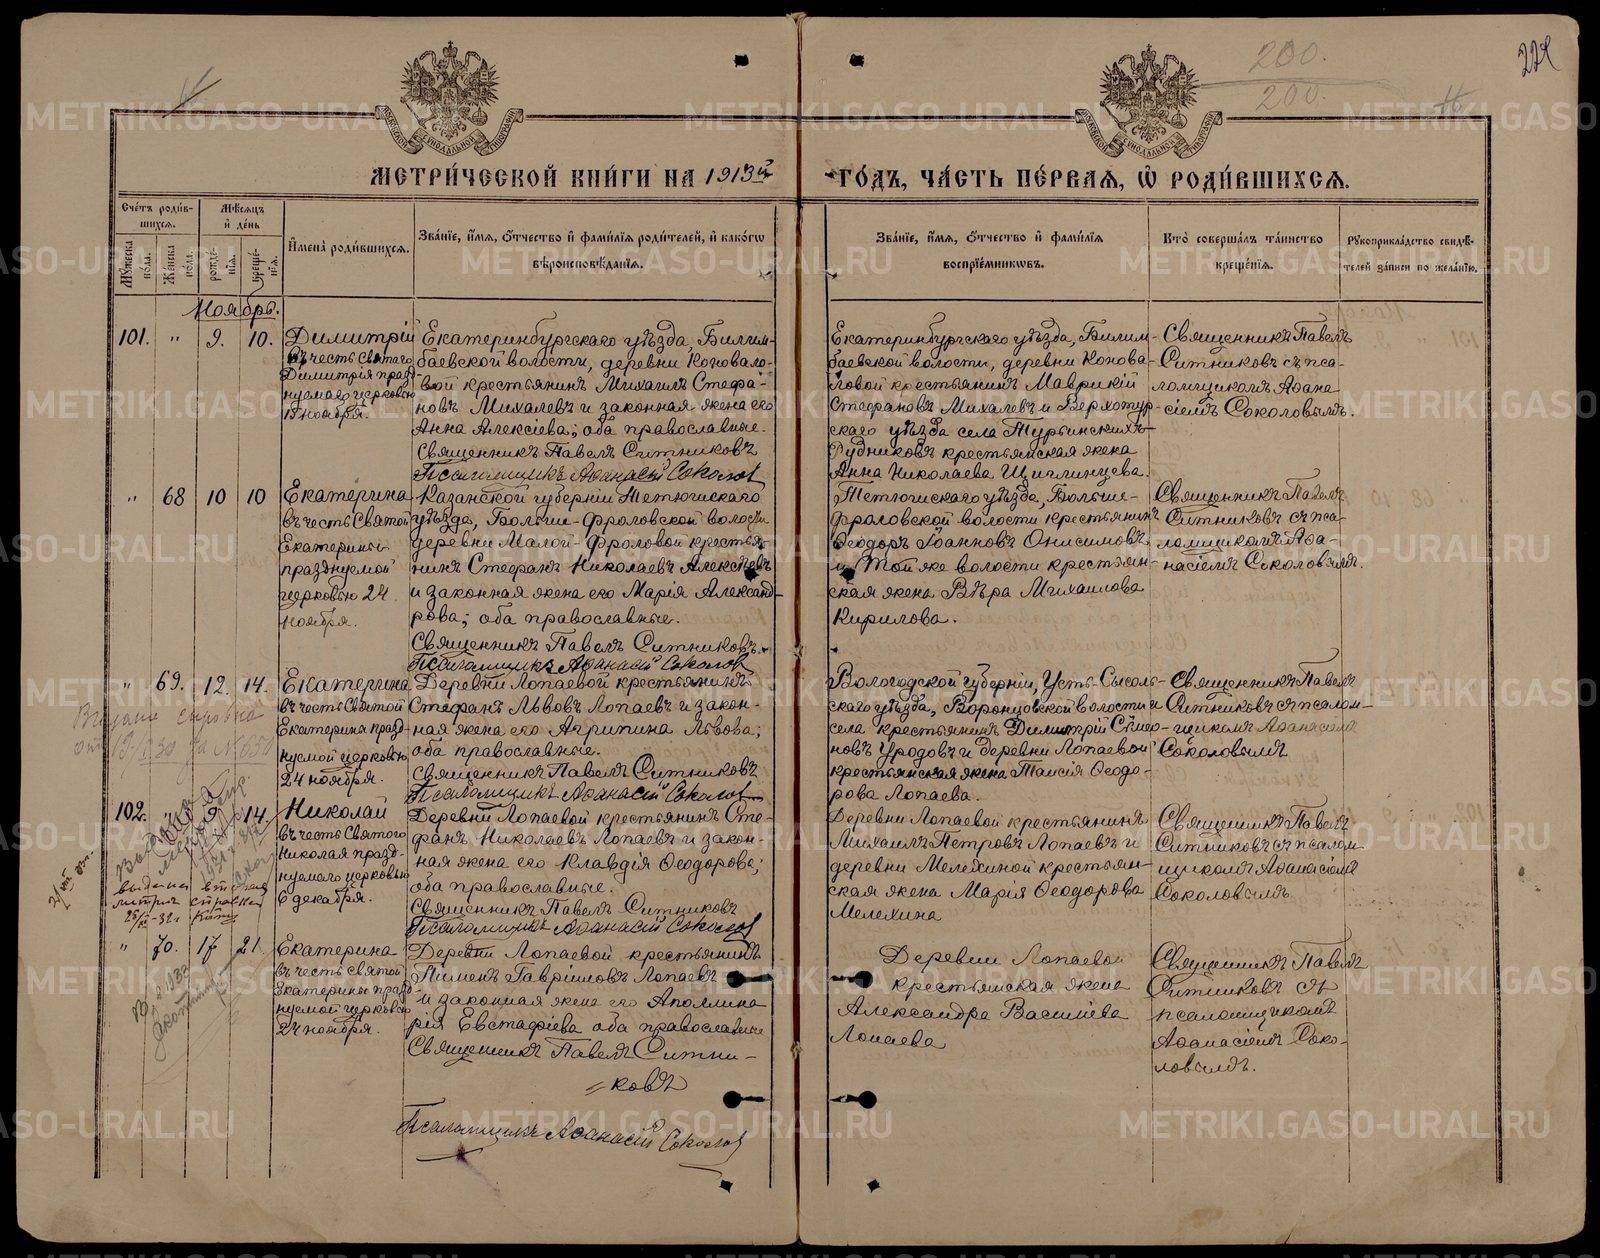 224
200.
200.
МЕТРИ́ЧЕСКОЙ КНИ́ГИ НА 1913й
ГО́ДЪ, ЧА́СТЬ ПЕ́РВАЯ, Ѡ РОДИ́ВШИХСЯ.
Сче́тъ роди́в-
шихся.
Му́жеска по́ла.
Же́нска по́ла.
Мѣ́сяцъ
и҆ де́нь
рожде́-
нїя.
креще́-
нїя.
И҆мена̀ роди́вшихся.
Зва́нїе, и҆́мя, ѻ҆́тчество и҆ фами́лїя роди́телей, и҆ како́гѡ
вѣроисповѣ́данїя.
Зва́нїе, и҆́мя, ѻ҆́тчество и҆ фами́лїя
воспрїе́мникѡвъ.
Кто̀ соверша́лъ та́инство
креще́нїя.
Рукоприкла́дство свидѣ́-
телей за́писи по жела́нїю.
Ноябрь.
101. " 9. 10.
Димитрій
въ честь Святаго
Димитрія празд-
нуемаго церковью
15 ноября.
Екатеринбургскаго уѣзда, Билим-
баевской волости, деревни Коновало-
вой крестьянинъ Михаилъ Стефа-
новъ Михалевъ и законная жена его
Анна Алексіева; оба православные.
Священникъ Павелъ Ситниковъ
Псаломщикъ Аѳанасій Соколовъ
Екатеринбургскаго уѣзда, Билим-
баевской волости, деревни Конова-
ловой крестьянинъ Маврикій
Стефановъ Михалевъ и Верхотур-
скаго уѣзда села Турьинскихъ
Рудниковъ крестьянская жена
Анна Николаева Щиплинцева.
Священникъ Павелъ
Ситниковъ съ пса-
ломщикомъ Аѳана-
сіемъ Соколовымъ.
" 68 10 10
Екатерина
въ честь Святой
Екатерины
празднуемой
церковью 24
ноября.
Казанской губерніи Тетюшскаго
уѣзда, Больше-Фроловской волости
деревни Малой-Фроловой крестья-
нинъ Стефанъ Николаевъ Алексѣевъ
и законная жена его Марія Александ-
рова; оба православные.
Священникъ Павелъ Ситниковъ.
Псаломщикъ Аѳанасій Соколовъ
Тетюшскаго уѣзда, Больше-
Фроловской волости крестьянинъ
Ѳеодоръ Іоанновъ Онисимовъ
и той же волости крестьян-
ская жена Вѣра Михаилова
Кирилова.
Священникъ Павелъ
Ситниковъ съ пса-
ломщикомъ Аѳа-
насіемъ Соколовымъ.
" 69. 12. 14.
Екатерина
въ честь Святой
Екатерины празд-
нуемой церковью
24 ноября.
Деревни Лопаевой крестьянинъ
Стефанъ Львовъ Лопаевъ и закон-
ная жена его Агрипина Львова;
оба православные.
Священникъ Павелъ Ситниковъ
Псаломщикъ Аѳанасій Соколовъ
Вологодской губерніи, Усть-Сысоль-
скаго уѣзда, Воронцовской волости и
села крестьянинъ Димитрій Симео-
новъ Уродовъ и деревни Лопаевой
крестьянская жена Таисія Ѳеодо-
рова Лопаева.
Священникъ Павелъ
Ситниковъ съ псалом-
щикомъ Аѳанасіемъ
Соколовымъ
102. " 9. 14.
Николай
въ честь Святого
Николая празд-
нуемаго церковью
6 декабря.
Деревни Лопаевой крестьянинъ Сте-
фанъ Николаевъ Лопаевъ и закон-
ная жена его Клавдія Ѳеодорова;
оба православные.
Священникъ Павелъ Ситниковъ
Псаломщикъ Аѳанасій Соколовъ
Деревни Лопаевой крестьянинъ
Михаилъ Петровъ Лопаевъ и
деревни Мелехиной крестьян-
ская жена Марія Ѳеодорова
Мелехина
Священникъ Павелъ
Ситниковъ съ псалом-
щикомъ Аѳанасіемъ
Соколовымъ
" 70. 17 21
Екатерина
въ честь Святой
Екатерины празд-
нуемой церковью
24 ноября.
Деревни Лопаевой крестьянинъ
Пименъ Гавріиловъ Лопаевъ
и законная жена его Аполлина-
рія Евстафіева оба православные
Священникъ Павелъ Ситни-
ковъ
Псаломщикъ Аѳанасій Соколовъ
Деревни Лопаевой
крестьянская жена
Александра Василіева
Лопаева
Священникъ Павелъ
Ситниковъ съ
псаломщикомъ
Аѳанасіемъ Соко-
ловымъ.
METRIKI.GASO-URAL.RU